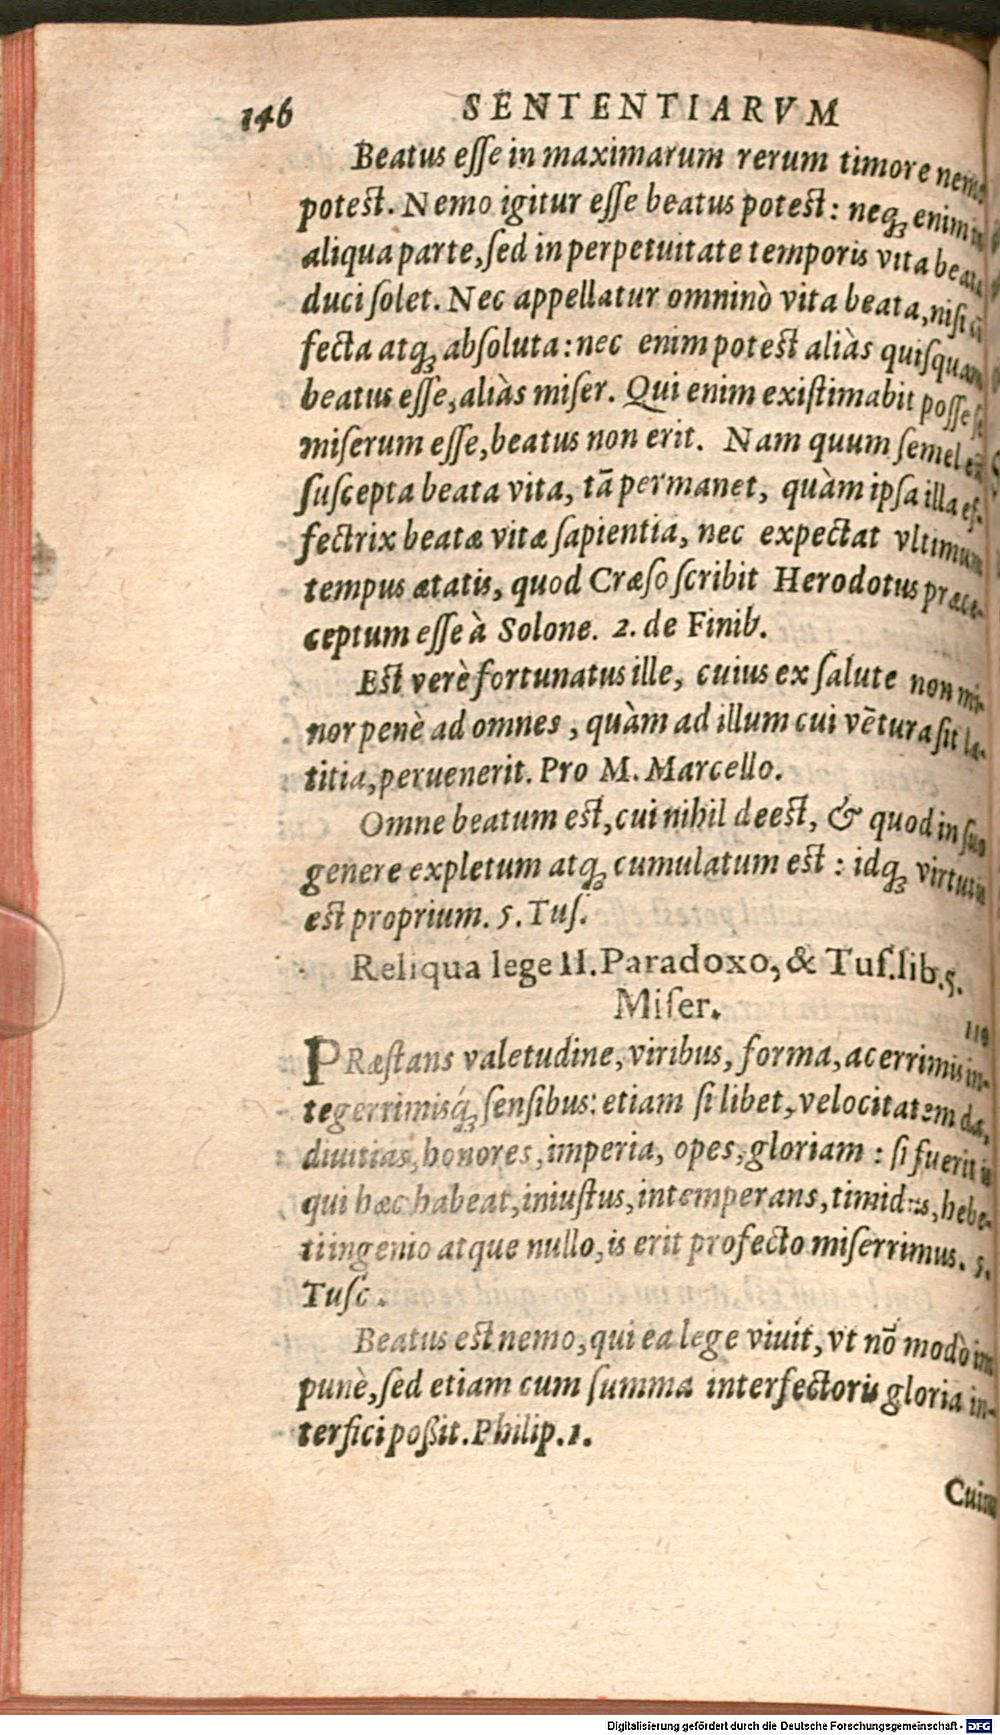 146 SENTENTIARVM
Beatus eſſe in maximarum rerum timore nemo
poteſt. Nemo igitur eſſe beatus poteſt: neq; enim in
aliqua parte, ſed in perpetuitate temporis vita beata
duci ſolet. Nec appellatur omninò vita beata, niſi
fecta atq; abſoluta: nec enim poteſt aliàs quiſquam
beatus eſſe, aliàs miſer. Qui enim exiſtimabit poſſe ſe
miſerum eſſe, beatus non erit. Nam quum ſemel
ſuſcepta beata vita, tā permanet, quàm ipſa illa ef-
fectrix beatæ vitæ ſapientia, nec expectat vltimum
tempus ætatis, quod Cræſo ſcribit Herodotus
ceptum eſſe à Solone. 2. de Finib.
Eſt verè fortunatus ille, cuius ex ſalute non mi-
nor penè ad omnes, quàm ad illum cui vētura ſit læ-
titia, peruenerit. Pro M. Marcello.
Omne beatum eſt, cui nihil deeſt, & quod in ſuo
genere expletum atq; cumulatum eſt: idq; virtutis
eſt proprium. 5. Tuſ.
Reliqua lege II. Paradoxo, & Tuſ. lib. 5.
Miſer. 110
PRæſtans valetudine, viribus, forma, acerrimis in-
tegerrimisq́; ſenſibus: etiam ſi libet, velocitatem da,
diuitias, honores, imperia, opes, gloriam: ſi fuerit is
qui hæc habeat, iniuſtus, intemperans, timidus, hebe-
ti ingenio atque nullo, is erit profecto miſerrimus. 5.
Tuſc.
Beatus eſt nemo, qui ea lege viuit, vt nō modò im
punè, ſed etiam cum ſumma interfectoris gloria in-
terfici poßit. Philip. 1.
Digitalisierung gefördert durch die Deutsche Forschungsgemeinschaft - DFG